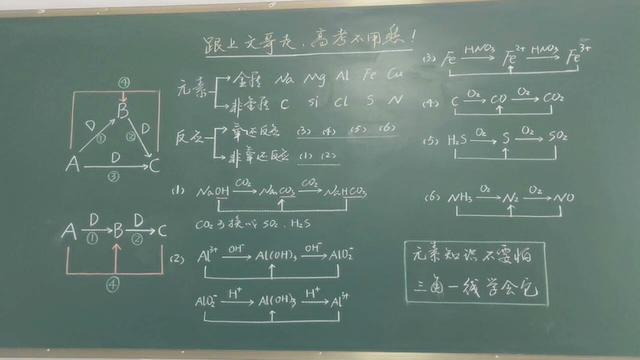 跟上文哥走,高考不用愁!
④
B
D D
① ②
A D C
③
A D→ B D→ C
① ②
④
元素 金属 Na Mg Al Fe Cu
非金属 C Si Cl S N
反应 氧还反应 (3) (4) (5) (6)
非氧还反应 (1) (2)
(1) NaOH CO₂→ Na₂CO₃ CO₂→ NaHCO₃
CO₂可换成 SO₂、H₂S
(2) Al³⁺ OH⁻→ Al(OH)₃ OH⁻→ AlO₂⁻
AlO₂⁻ H⁺→ Al(OH)₃ H⁺→ Al³⁺
(3) Fe HNO₃→ Fe²⁺ HNO₃→ Fe³⁺
(4) C O₂→ CO O₂→ CO₂
(5) H₂S O₂→ S O₂→ SO₂
(6) NH₃ O₂→ N₂ O₂→ NO
元素知识不要怕
三角一线学会它